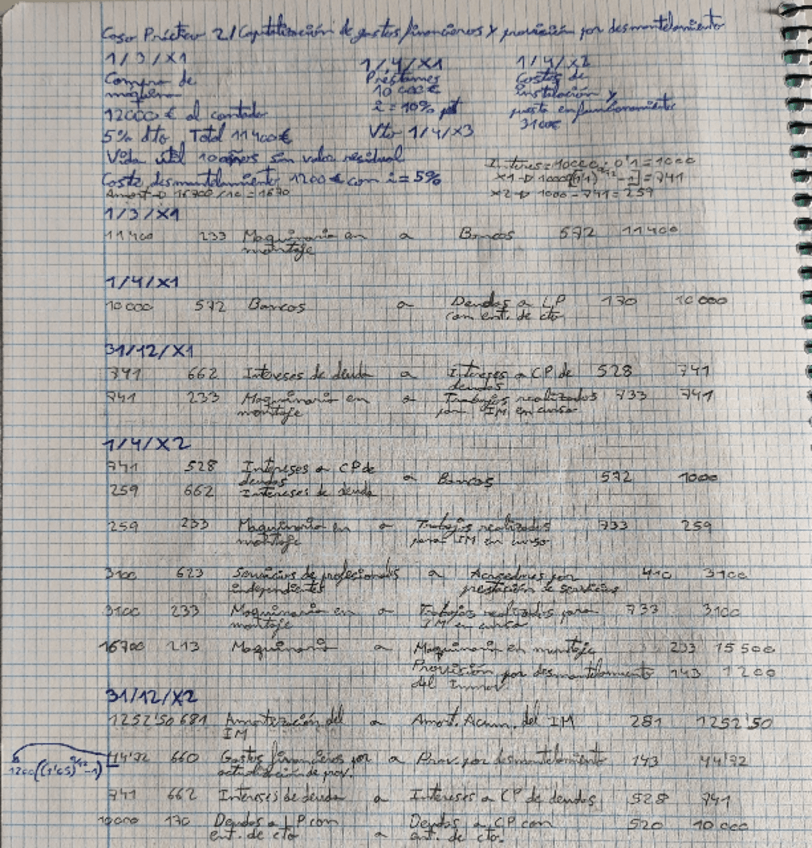 Caso Práctico 2/Capitalización de gastos financieros y provisión por desmantelamiento
1/3/X1
Compra de
máquina
12000 € al contado
5% dto, Total 11400€
Vida útil 10 años sin valor residual
Coste desmantelamiento 1200 € con i = 5%
Amort → 16700/10 = 1670
1/4/X1
Préstamos
10 000€
i = 10%
Vto 1/4/X3
1/4/X2
Costes de
instalación y
puesta en funcionamiento
3100€
Interes = 10000 · 0'1 = 1000
X1 → 10000[(1'1)^9/12 - 1] = 741
X2 → 1000 - 741 = 259
1/3/X1
11400 233 Maquinaria en montaje a Bancos 572 11400
1/4/X1
10000 572 Bancos a Deudas a LP con ent. de cto. 170 10000
31/12/X1
741 662 Intereses de deuda a Intereses a CP de deudas 528 741
741 233 Maquinaria en montaje a Trabajos realizados para IM en curso 733 741
1/4/X2
741 528 Intereses a CP de deudas a Bancos 572 1000
259 662 Intereses de deuda
259 233 Maquinaria en montaje a Trabajos realizados para IM en curso 733 259
3100 623 Servicios de profesionales independientes a Acreedores por prestación de servicios 410 3100
3100 233 Maquinaria en montaje a Trabajos realizados para IM en curso 733 3100
16700 213 Maquinaria a Maquinaria en montaje 233 15500
Provisión por desmantelamiento del Inmov. 143 1200
31/12/X2
1252'50 681 Amortización del IM a Amort. Acum. del IM 281 1252'50
44'72 660 Gastos financieros por actualización de prov. a Prov. por desmantelamiento 143 44'72
1200((1'05)^9/12 - 1)
741 662 Intereses de deuda a Intereses a CP de deudas 528 741
10000 170 Deudas a LP con ent. de cto a Deudas a CP con ent. de cto. 520 10000